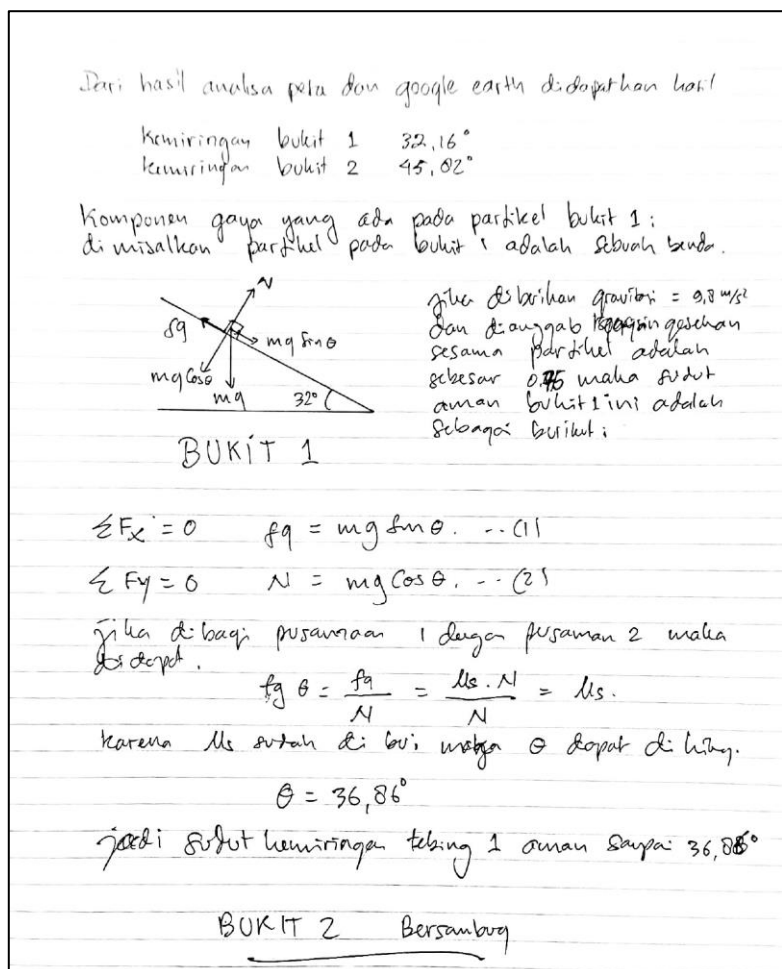 Dari hasil analisa peta dan google earth didapatkan hasil
Kemiringan bukit 1 32,16°
kemiringan bukit 2 45,02°
Komponen gaya yang ada pada partikel bukit 1:
di misalkan partikel pada bukit 1 adalah sebuah benda.
N
fg
mg sinθ
mg cosθ
mg
32°
BUKIT 1
jika diberikan gravitasi = 9,8 m/s²
dan dianggab gesekan
sesama partikel adalah
sebesar 0,75 maka sudut
aman bukit 1 ini adalah
sebagai berikut:
ΣFx = 0 fg = mg sin θ. ...(1)
ΣFy = 0 N = mg cos θ. ...(2)
jika dibagi persamaan 1 dengan persamaan 2 maka
di dapat.
tg θ = fg/N = μs.N/N = μs.
karena μs sudah di beri maka θ dapat di hitung.
θ = 36,86°
jadi sudut kemiringan tebing 1 aman sampai 36,86°
BUKIT 2 Bersambug